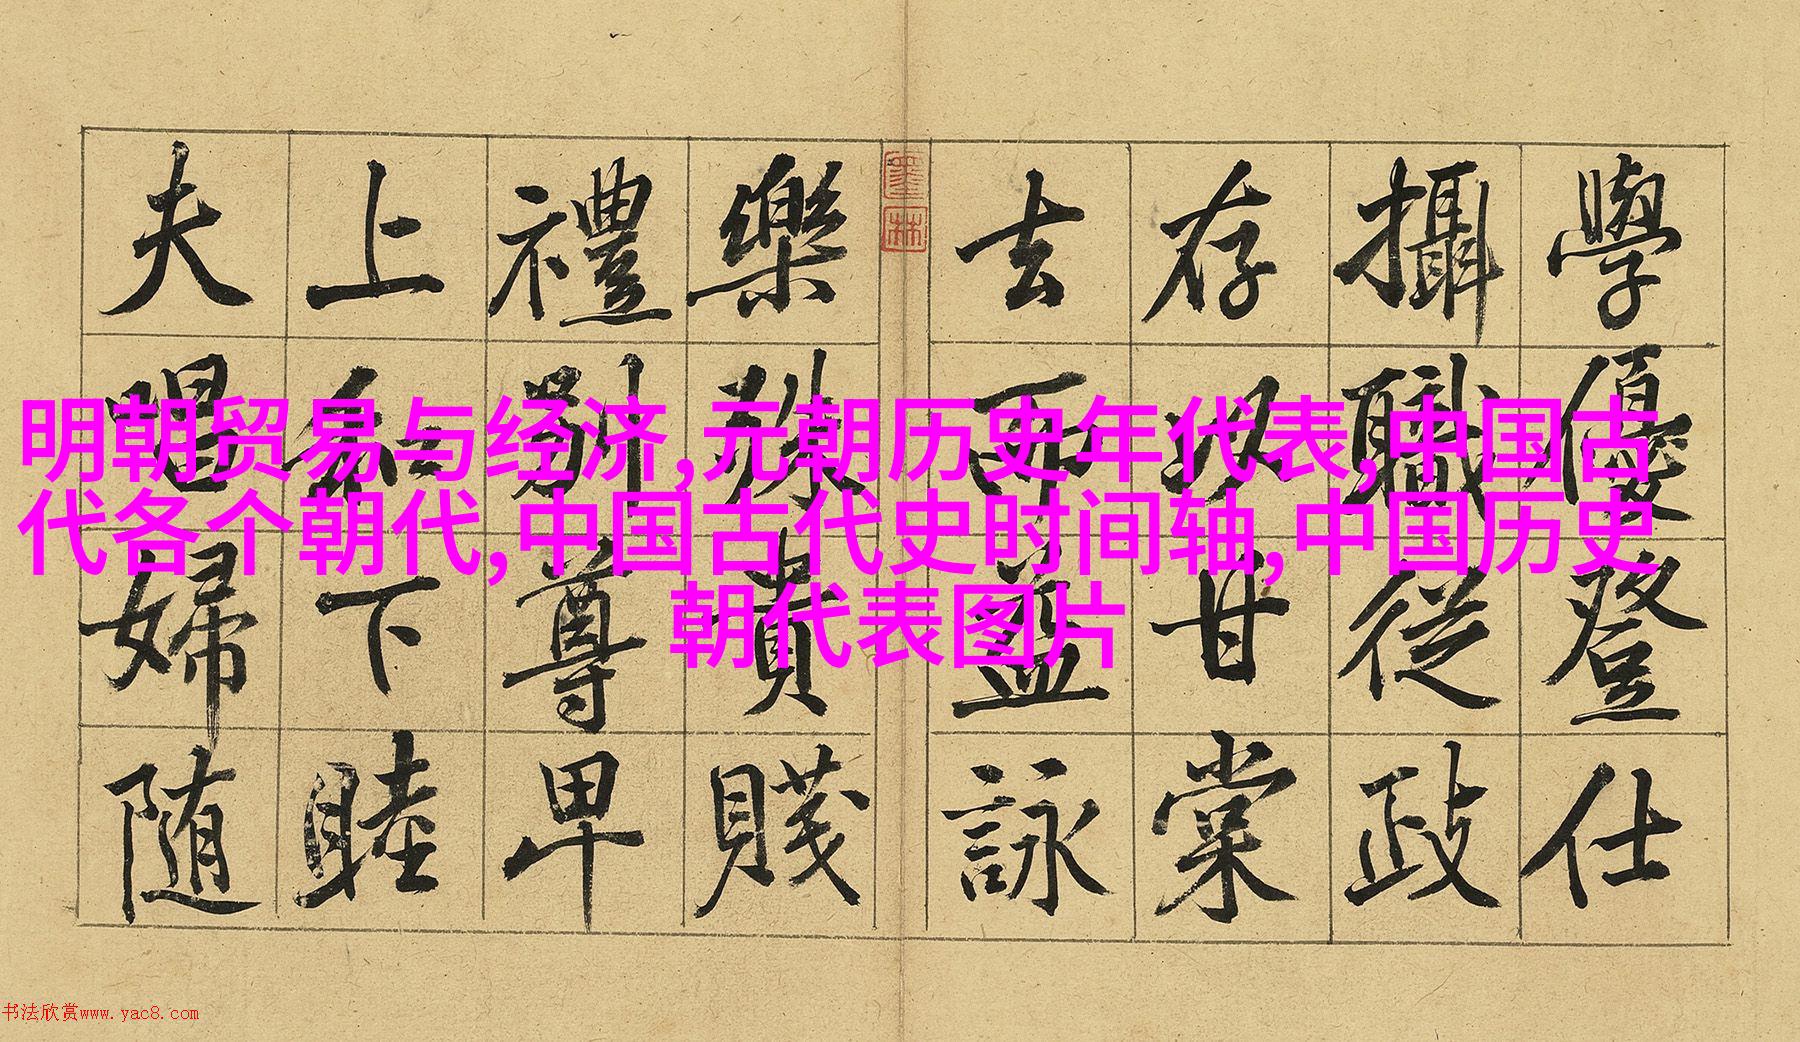 學優登仕
攝職從政
存以甘棠
去而益詠
墨林
樂殊貴賤
禮別尊卑
上和下睦
夫唱婦随
明朝贸易与经济,元朝历史年代表,中国古
代各个朝代,中国古代史时间轴,中国历史
朝代表图片
书法欣赏www.yac8.com